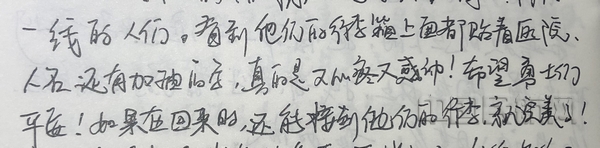 一线的人们。看到他们的行李箱上面都贴着医院、
人名还有加油的字,真的是又心疼又感动!希望勇士们
平安!如果在回来时,还能接到他们的行李.就完美了!